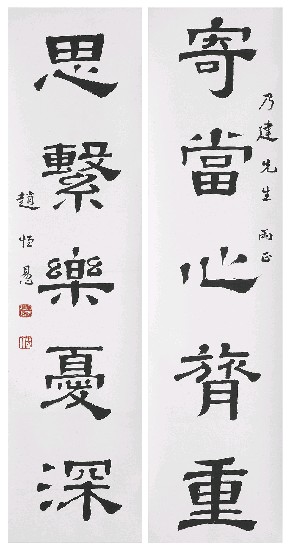 寄當心膂重
乃建先生兩正
思繫樂憂深
趙恒惕